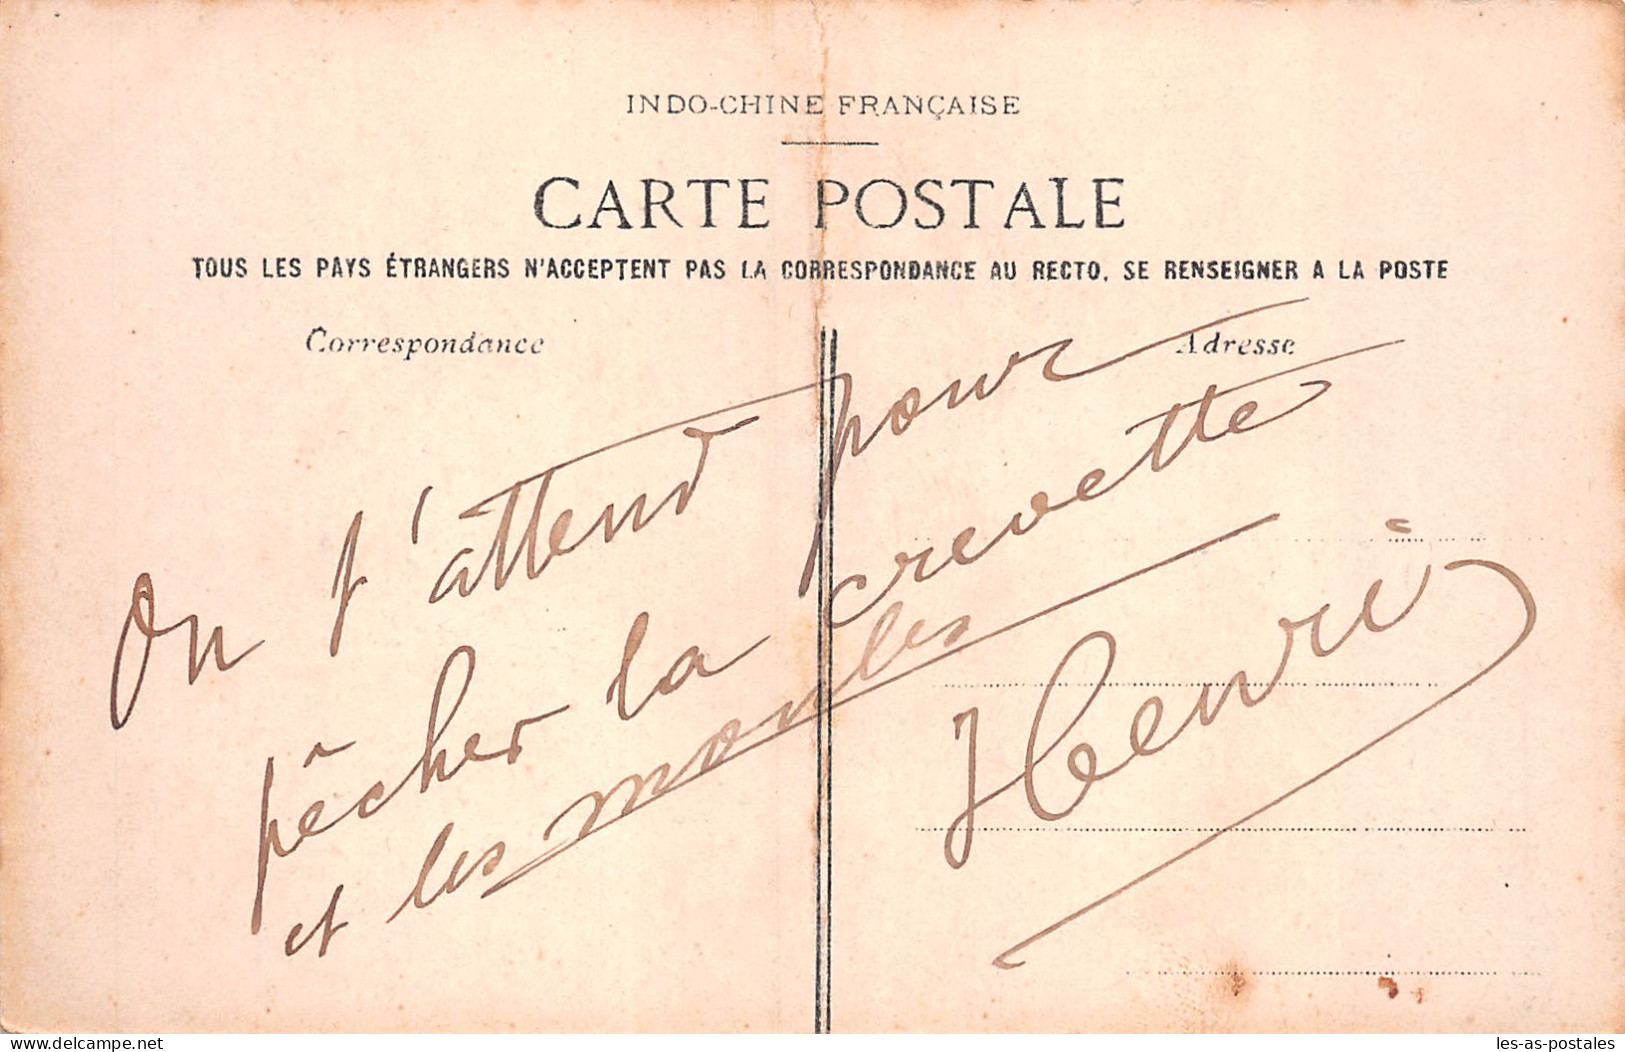 INDO-CHINE FRANÇAISE
CARTE POSTALE
TOUS LES PAYS ÉTRANGERS N'ACCEPTENT PAS LA CORRESPONDANCE AU RECTO, SE RENSEIGNER A LA POSTE
Correspondance
Adresse
On t'attend pour
pêcher la crevette
et les moules
Henri
www.delcampe.net
les-as-postales